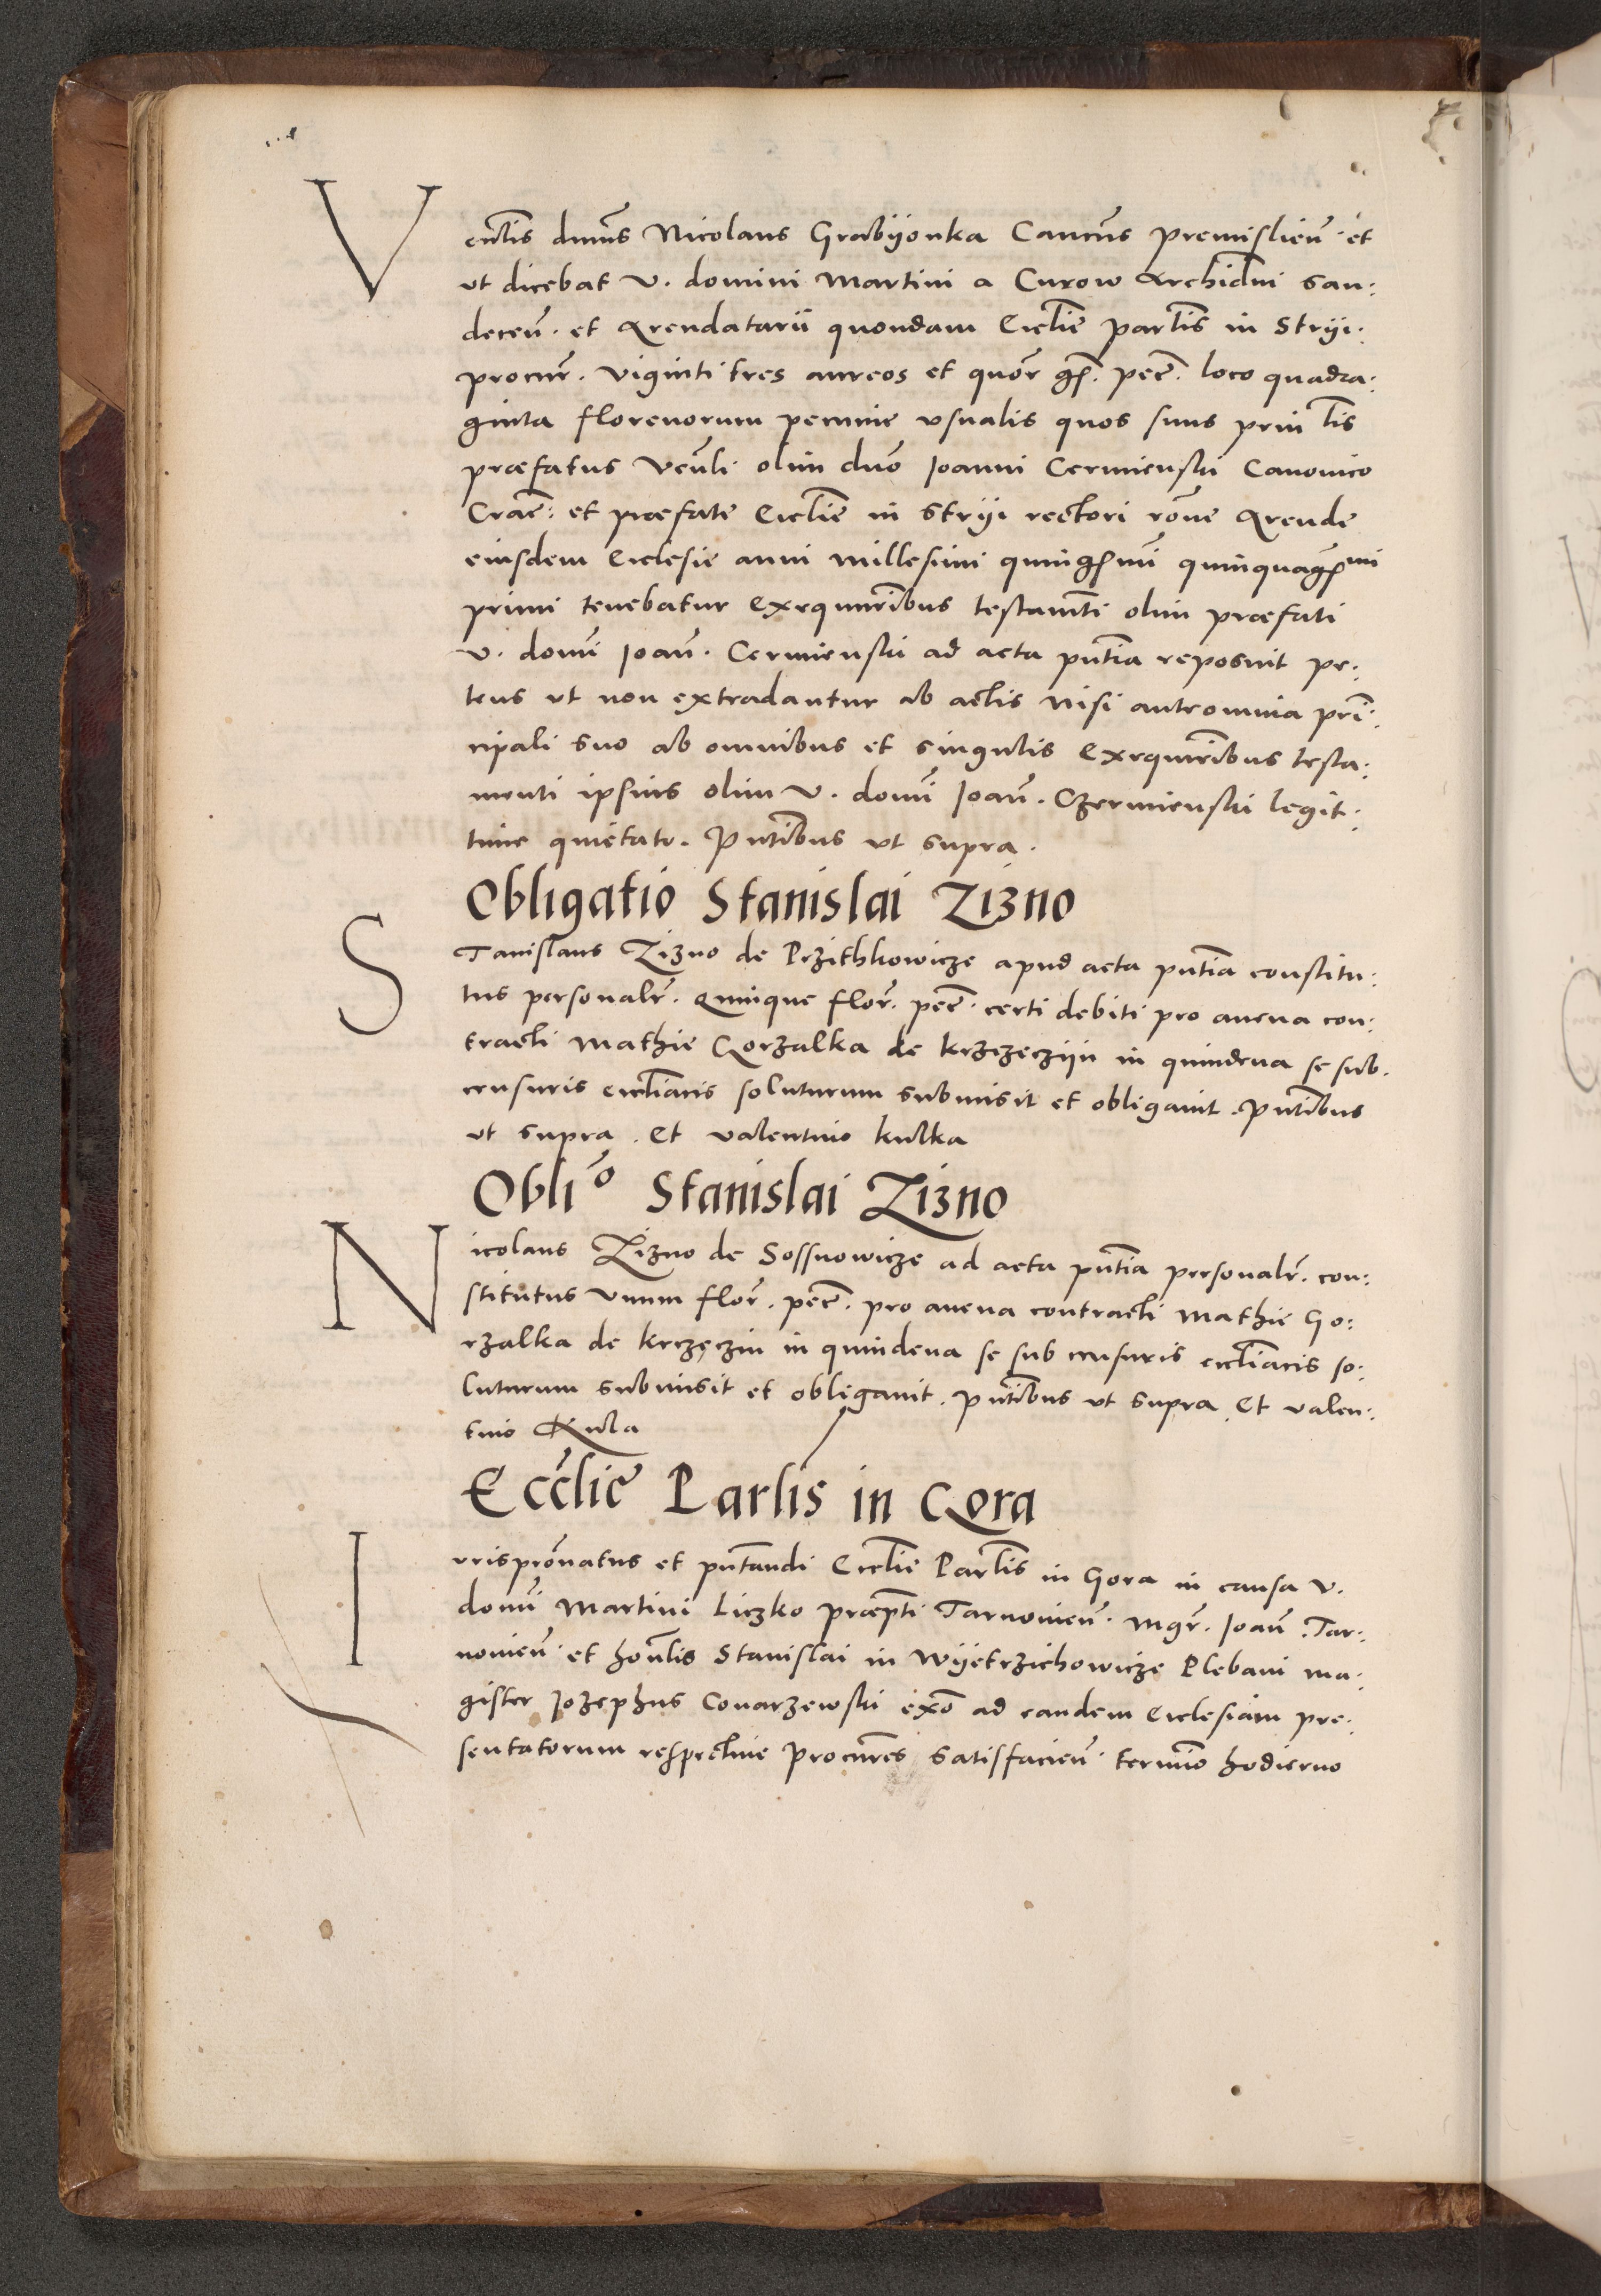 Venlis dnus Nicolaus Grabyonka Cancus Premislien et
ut dicebat v. domini Martini a Curow Archidni San:
decen. et Arendatarii quondam Ecclie parlis in Stryi.
procur. viginti tres aureos et quor gs. pec. loco quadra:
ginta florenorum pecunie usualis quos suus prin lis
præfatus Venli olim dno Joanni Cermienski Canonico
Crac: et præfate Ecclie in Stryi rectori rone Arende
eiusdem Ecclesie anni millesimi quingsmi quinquagsmi
primi tenebatur Exequutoribus testamti olim præfati
v. domi Joan. Cermienski ad acta pntia reposuit pe:
tens ut non extradantur ab actis nisi autronimia prin:
cipali suo ab omnibus et singulis Exequutoribus testa:
menti ipsius olim v. domi Joan. Czermienski legit:
time quietato. Pntibus ut supra.
Obligatio Stanislai Zizno
Stanislaus Zizno de Przithkowicze apud acta pntia constitu:
tus personalr. Quinque flor. pec. certi debiti pro avena con:
tracti Mathie Gorzalka de Krzczeczyn in quindena se sub.
censuris ecclíacis soluturum submisit et obligavit. Pntibus
ut supra. Et Valentino Kulka
Oblio Stanislai Zizno
Nicolaus Zizno de Sossnowicze ad acta pntia personalr. con:
stitutus Unum flor. pec. pro avena contracti Mathie Go:
rzalka de Krczęczin in quindena se sub censuris eccliacis so:
luturum submisit et obligavit. Pntibus ut supra. Et Valen:
tino Kula
Ecclie Parlis in Gora
Iurispronatus et pntandi Ecclie Parlis in Gora in causa v.
domi Martini Liczko præpti Tarnovien. Mgr. Joan. Tar:
novien et honlis Stanislai in Wyetrzichowicze Plebani ma:
gister Jozephus Conarzewski exo ad eandem Ecclesiam pre:
sentatorum respective Procures satisfacien. termino hodierno